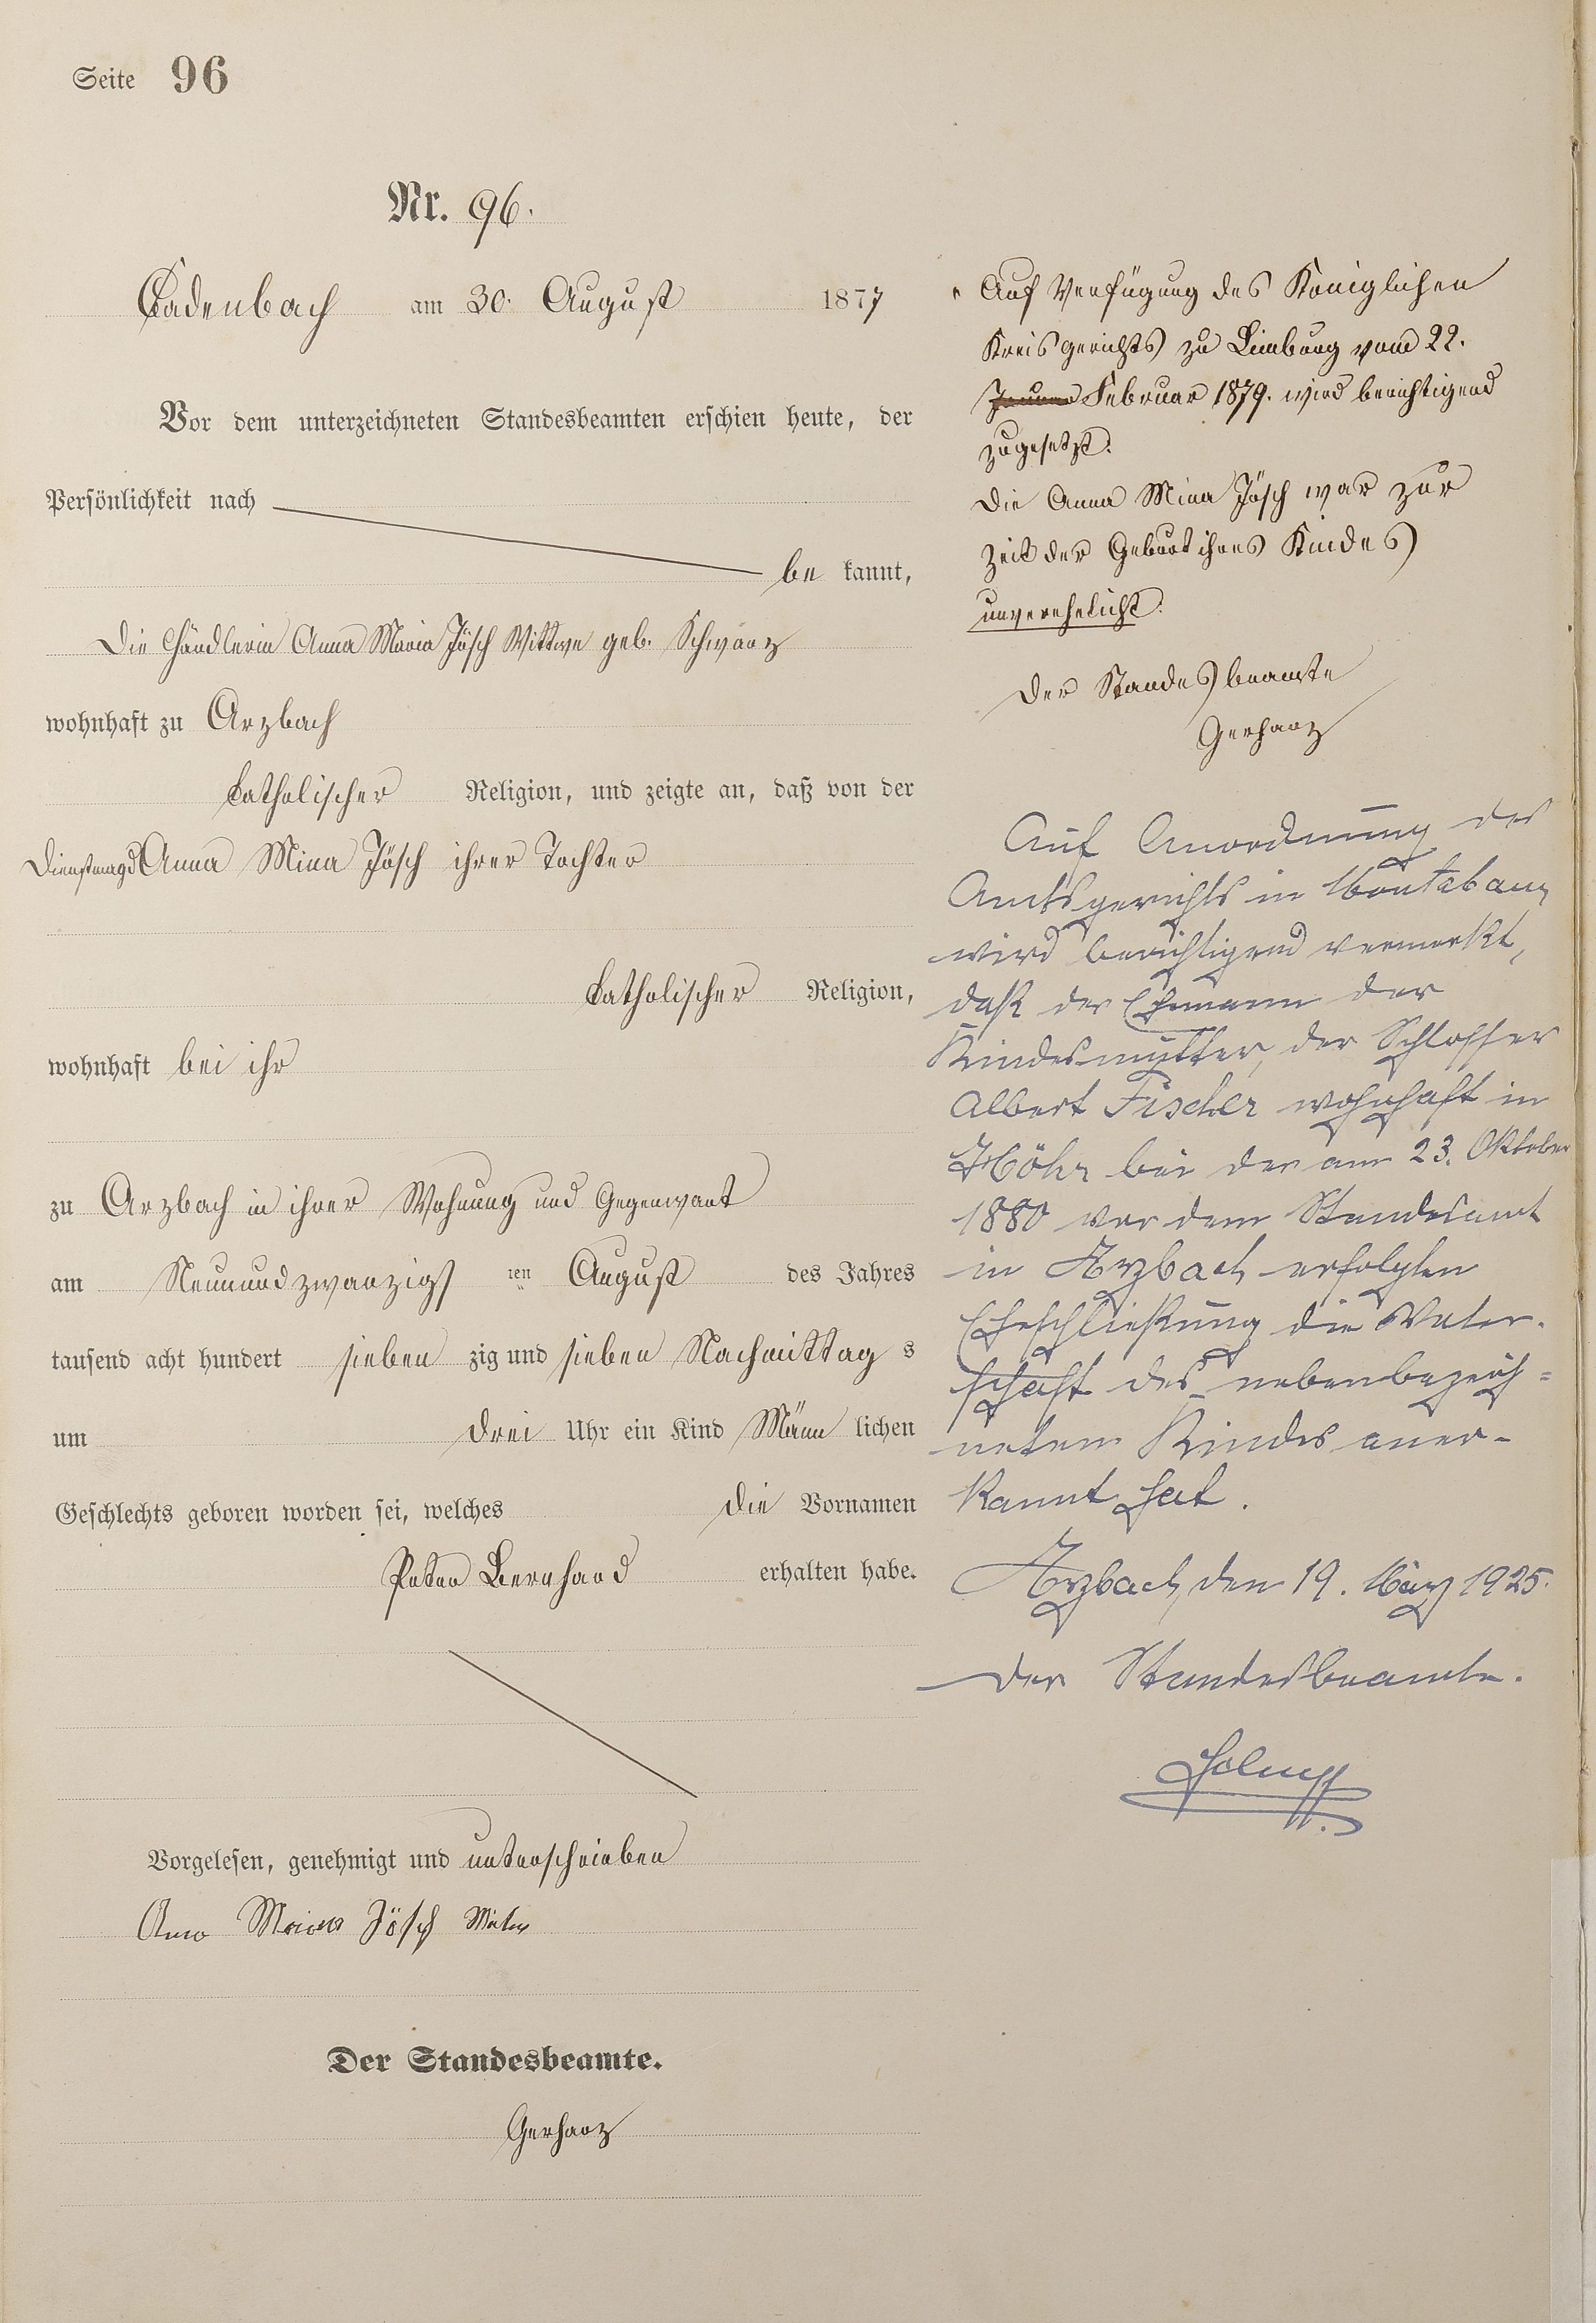 Seite 96
Nr. 96.
Cadenbach am 30. August 1877
Vor dem unterzeichneten Standesbeamten erschien heute, der
Persönlichkeit nach
be kannt,
die Händlerin Anna Maria Jösch Wittwe geb. Schwarz
wohnhaft zu Arzbach
katholischer Religion, und zeigte an, daß von der
Dienstmagd Anna Mina Jösch ihrer Tochter
katholischer Religion,
wohnhaft bei ihr
zu Arzbach in ihrer Wohnung und Gegenwart
am Neunundzwanzigs ten August des Jahres
tausend acht hundert sieben zig und sieben Nachmittag s
um drei Uhr ein Kind Männ lichen
Geschlechts geboren worden sei, welches die Vornamen
Peter Bernhard erhalten habe.
Vorgelesen, genehmigt und unterschrieben
Jösch
Der Standesbeamte.
Gerharz
Auf Verfügung des Königlichen
Kreisgerichts zu Limburg vom 22.
Februar 1879. wird berichtigend
zugesetzt.
Die Anna Mina Jösch war zur
Zeit der Geburt ihres Kindes
unverehelicht.
Der Standesbeamte
Gerharz
Auf Anordnung des
Amtsgerichts in Montabaur
wird berichtigend vermerkt,
daß der Ehemann der
Kindesmutter, der Schlosser
Albert Fischer wohnhaft in
Höhr bei der am 23. Oktober
1880 vor dem Standesamt
in Arzbach erfolgten
Eheschließung die Vater-
schaft des nebenbezeich=
neten Kindes aner-
kannt hat.
Arzbach, den 19. März 1925.
Der Standesbeamte.